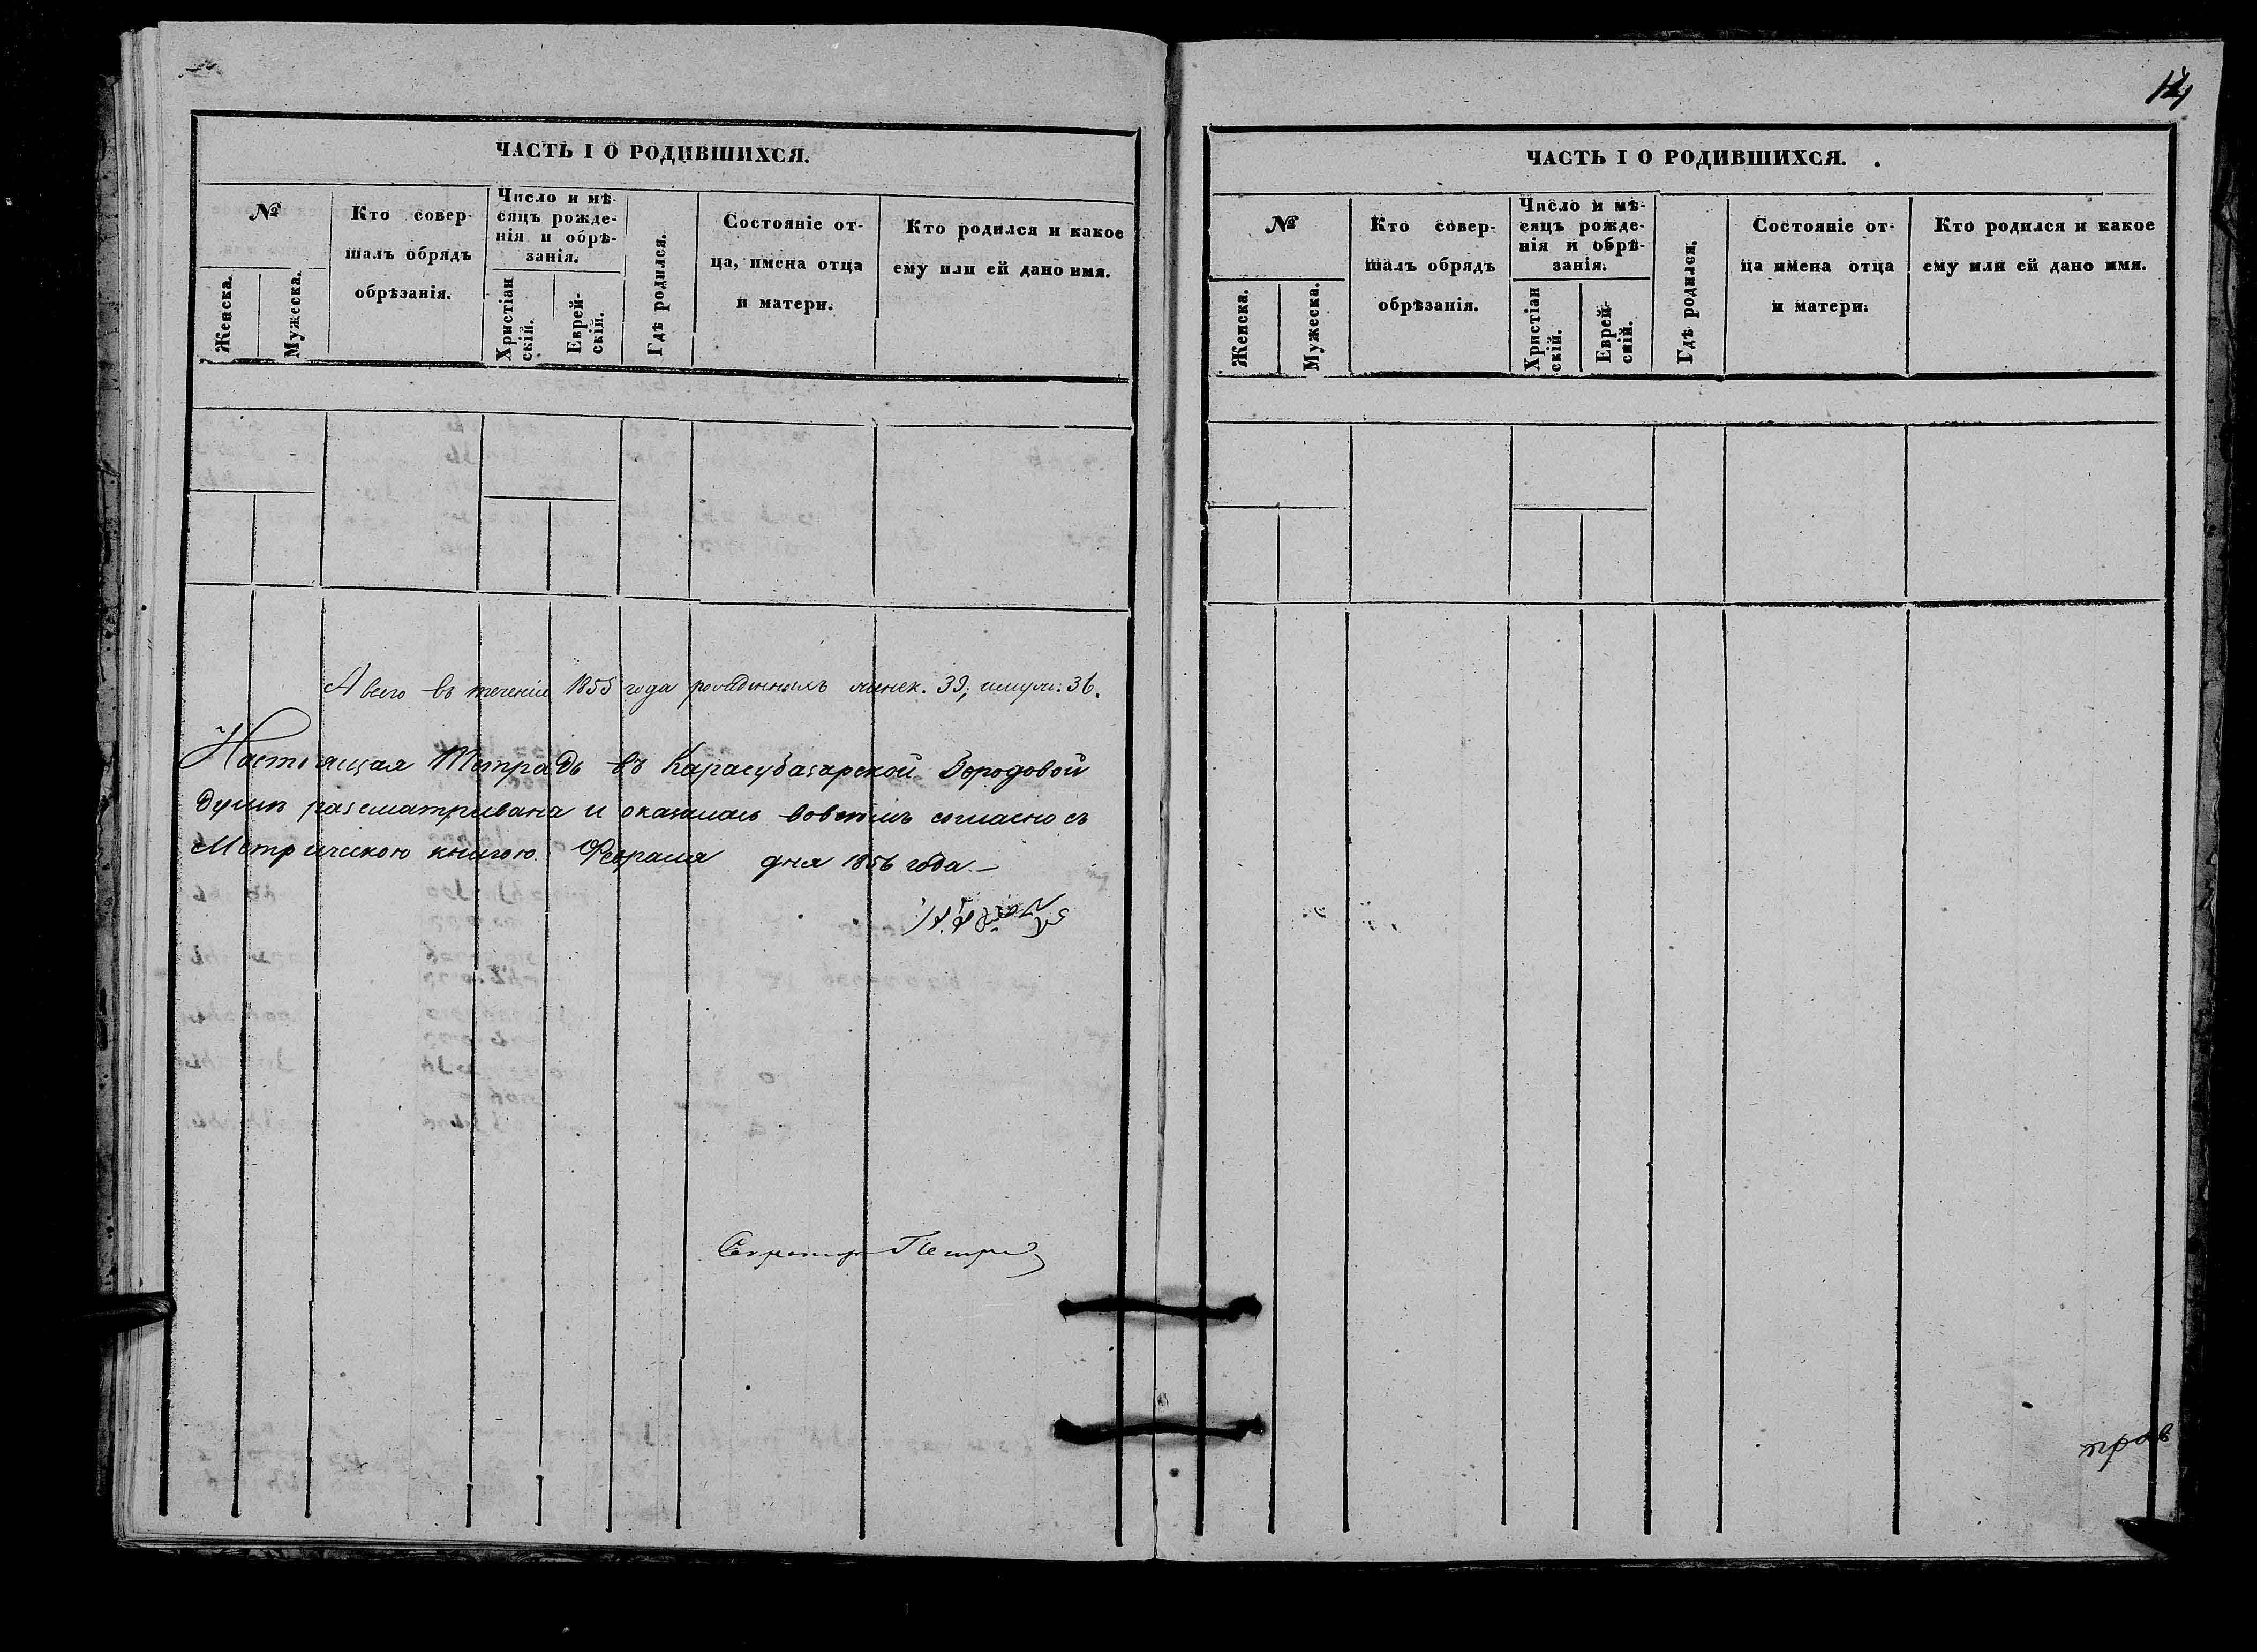 ЧАСТЬ I О РОДИВШИХСЯ.
№
Женска.
Мужеска.
Кто совер-
шалъ обрядъ
обрѣзанія.
Число и мѣ-
сяцъ рожде-
нія и обрѣ-
занія.
Христіан
скій.
Еврей-
скій.
Гдѣ родился.
Состояніе от-
ца, имена отца
и матери.
Кто родился и какое
ему или ей дано имя.
А всего въ теченіи 1855 года рожденныхъ женск. 39, и муж: 36.
Настоящая Тетрадь въ Карасубазарской Городовой
думѣ разсматривана и оказалась во всемъ согласно съ
Метрическою книгою. Февраля дня 1856 года. —
Секретарь
14
ЧАСТЬ I О РОДИВШИХСЯ.
№
Женска.
Мужеска.
Кто совер-
шалъ обрядъ
обрѣзанія.
Число и мѣ-
сяцъ рожде-
нія и обрѣ-
занія.
Христіан
скій.
Еврей-
скій.
Гдѣ родился.
Состояніе от-
ца имена отца
и матери.
Кто родился и какое
ему или ей дано имя.